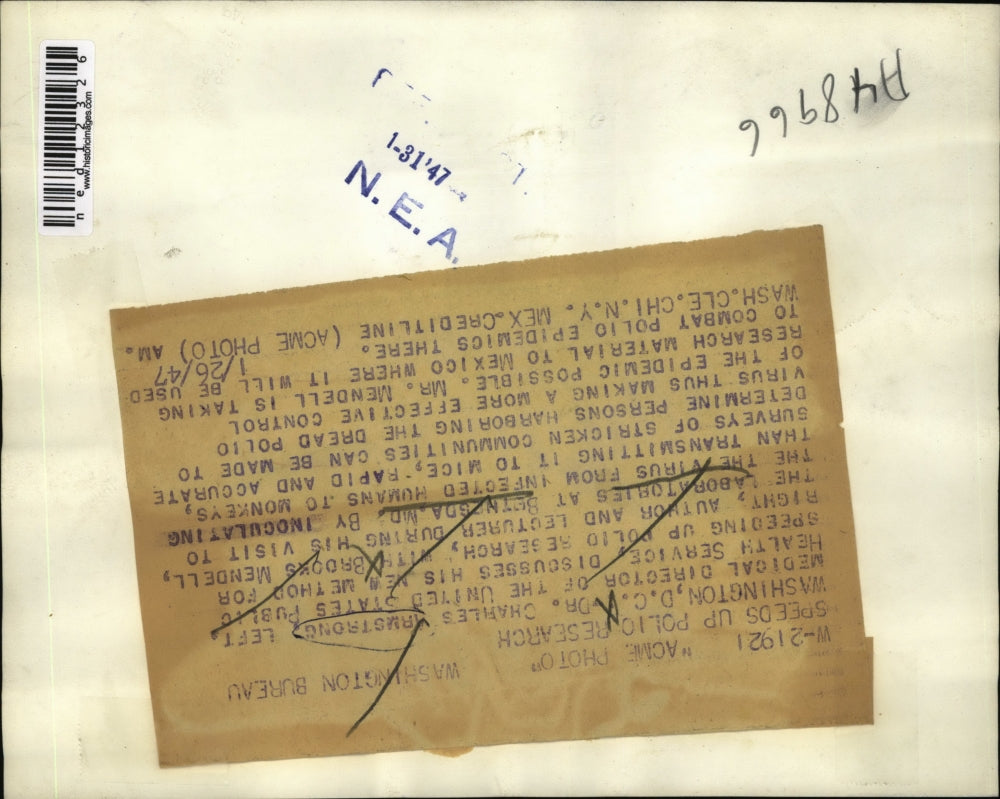 ned12326
www.historicimages.com
1-31'47
N.E.A.
W-21921 "ACME PHOTO" WASHINGTON BUREAU
SPEEDS UP POLIO RESEARCH
WASHINGTON, D.C. DR. CHARLES ARMSTRONG, LEFT,
MEDICAL DIRECTOR OF THE UNITED STATES PUBLIC
HEALTH SERVICE, DISCUSSES HIS NEW METHOD FOR
SPEEDING UP POLIO RESEARCH, WITH BROOKS MENDELL,
RIGHT, AUTHOR AND LECTURER DURING HIS VISIT TO
THE LABORATORIES AT BETHESDA, MD. BY INOCULATING
THE THE VIRUS FROM INFECTED HUMANS TO MONKEYS,
THAN TRANSMITTING IT TO MICE, RAPID AND ACCURATE
SURVEYS OF STRICKEN COMMUNITIES CAN BE MADE TO
DETERMINE PERSONS HARBORING THE DREAD POLIO
VIRUS THUS MAKING A MORE EFFECTIVE CONTROL
OF THE EPIDEMIC POSSIBLE. MR. MENDELL IS TAKING
RESEARCH MATERIAL TO MEXICO WHERE IT WILL BE USED
TO COMBAT POLIO EPIDEMICS THERE. 1/26/47
WASH.CLE.CHI.N.Y. MEX.CREDITLINE (ACME PHOTO) AM.